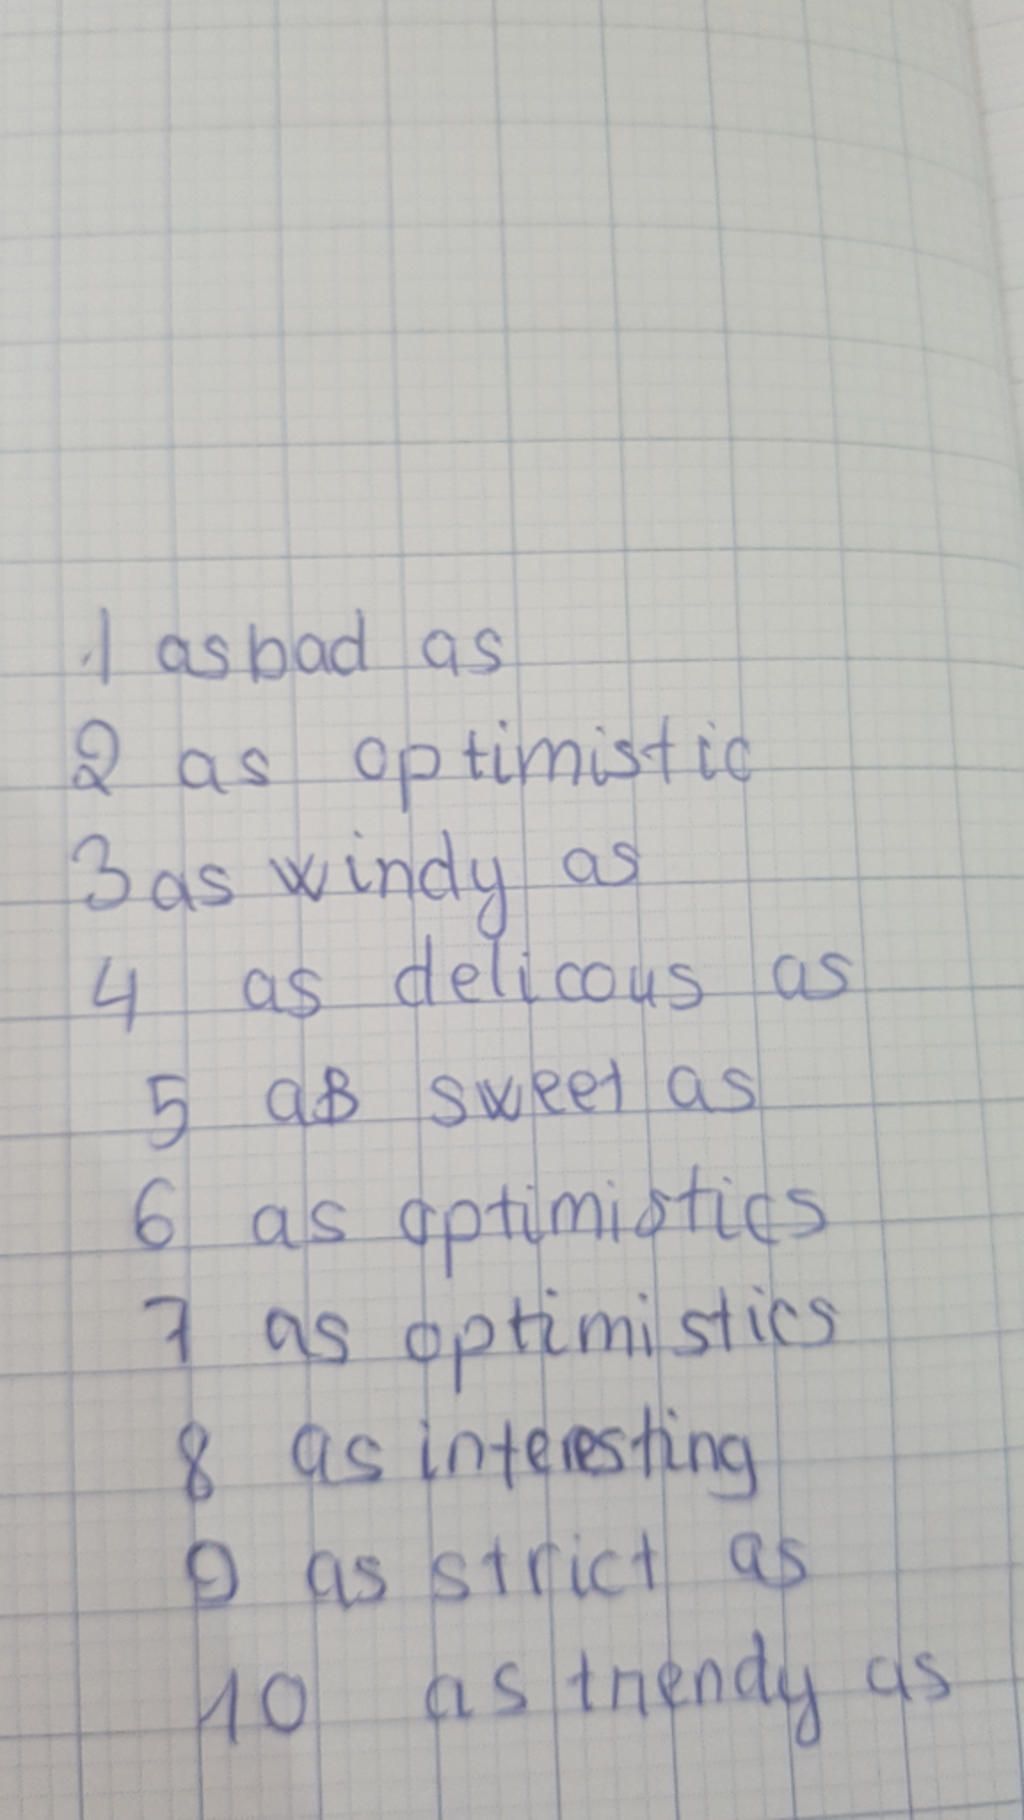 1 as bad as
2 as optimistic
3 as windy as
4 as delicous as
5 as sweet as
6 as optimistics
7 as optimistics
8 as interesting
9 as strict as
10 as trendy as